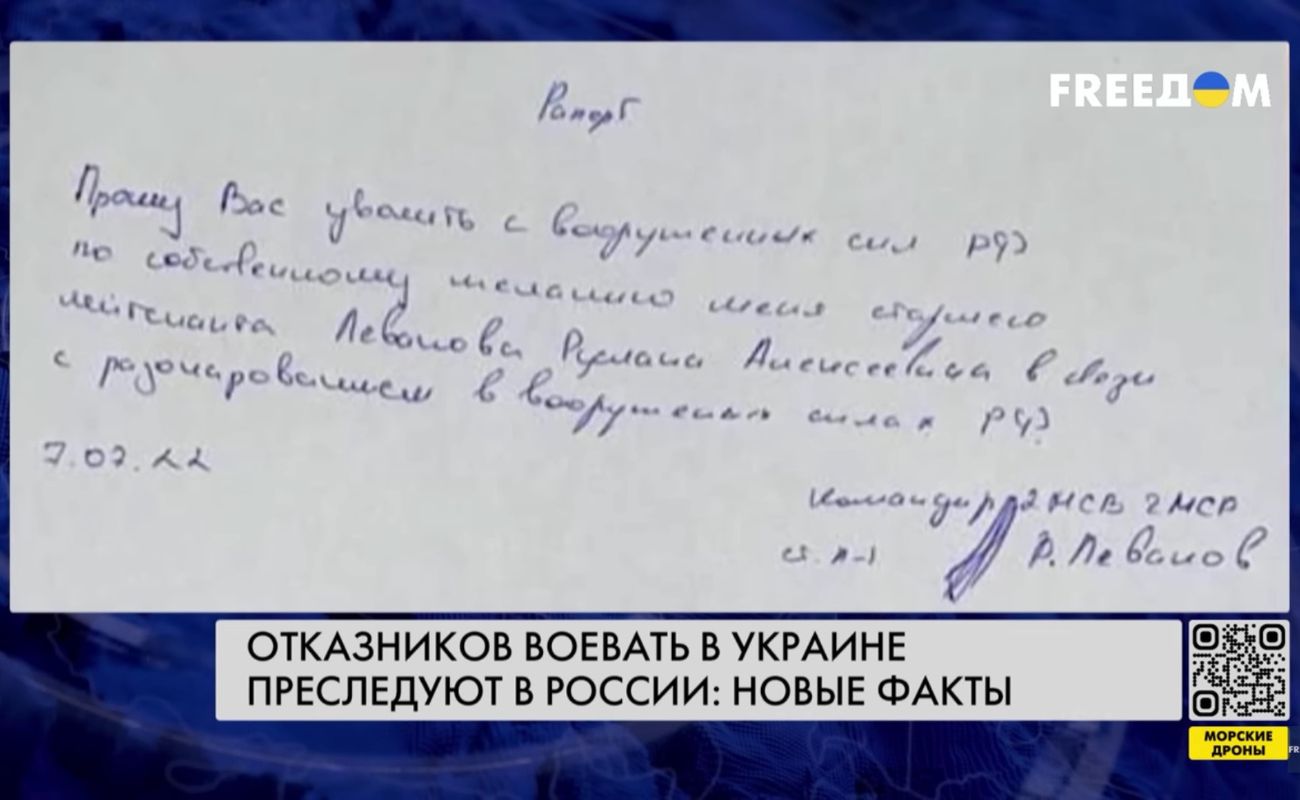 FREEДOM
Рапорт
Прошу Вас уволить с вооруженных сил РФ
по собственному желанию меня старшего
лейтенанта Леванова Руслана Алексеевича в связи
с разочарованием в вооруженных силах РФ.
7.07.22
Командир 2 МСВ 2 МСР
ст. л-т Р. Леванов
ОТКАЗНИКОВ ВОЕВАТЬ В УКРАИНЕ
ПРЕСЛЕДУЮТ В РОССИИ: НОВЫЕ ФАКТЫ
МОРСКИЕ
ДРОНЫ
FR